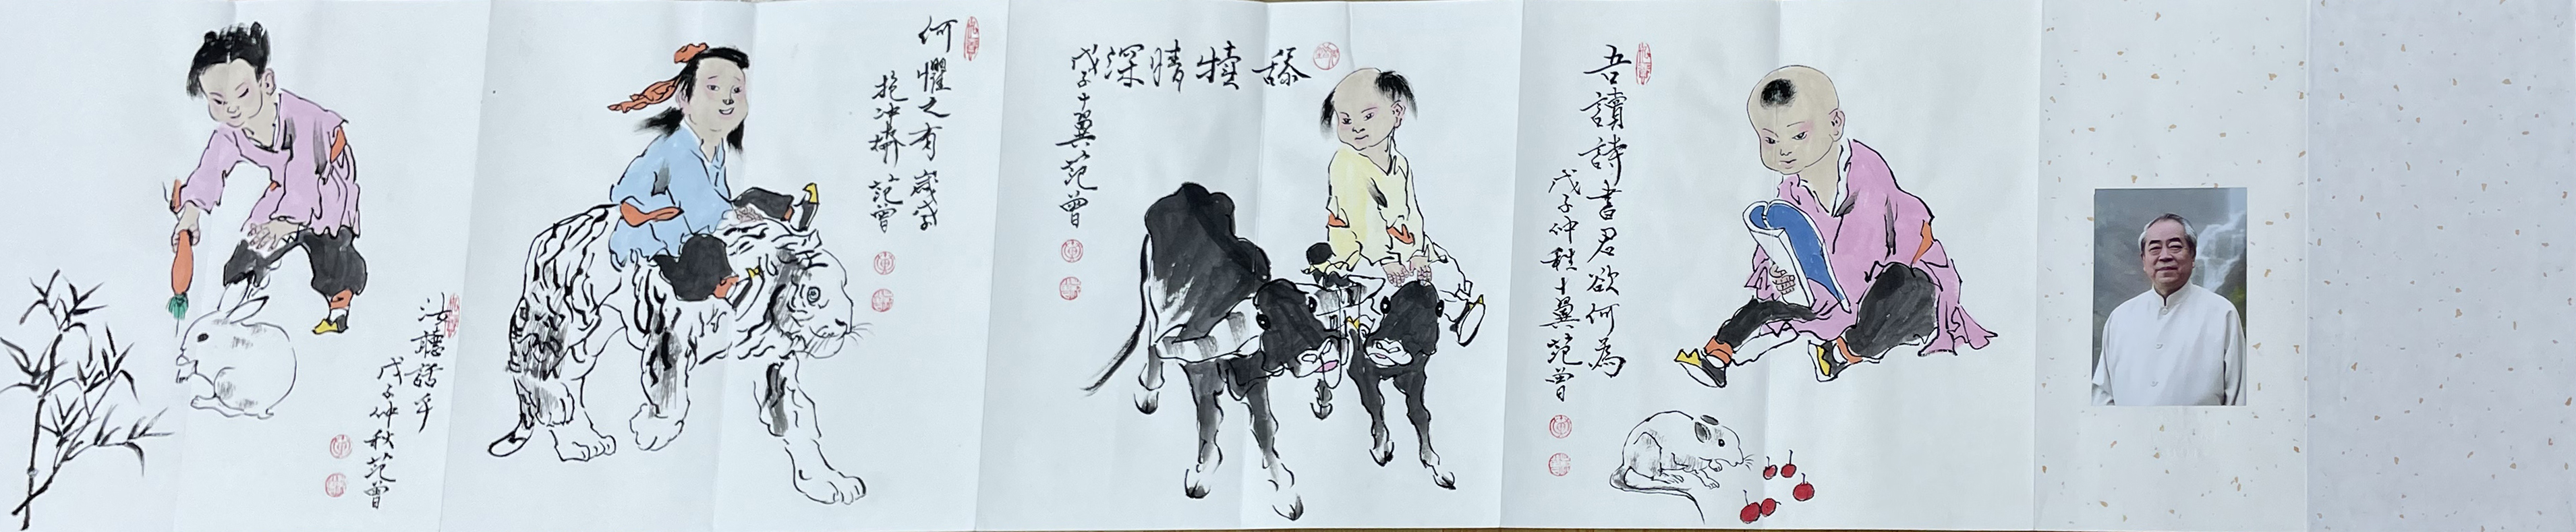 吾讀詩書君欲何為
戊子仲秋十翼范曾
舐犢情深
戊子十翼范曾
何懼之有
抱冲齋 范曾
汝聽話乎
戊子仲秋范曾